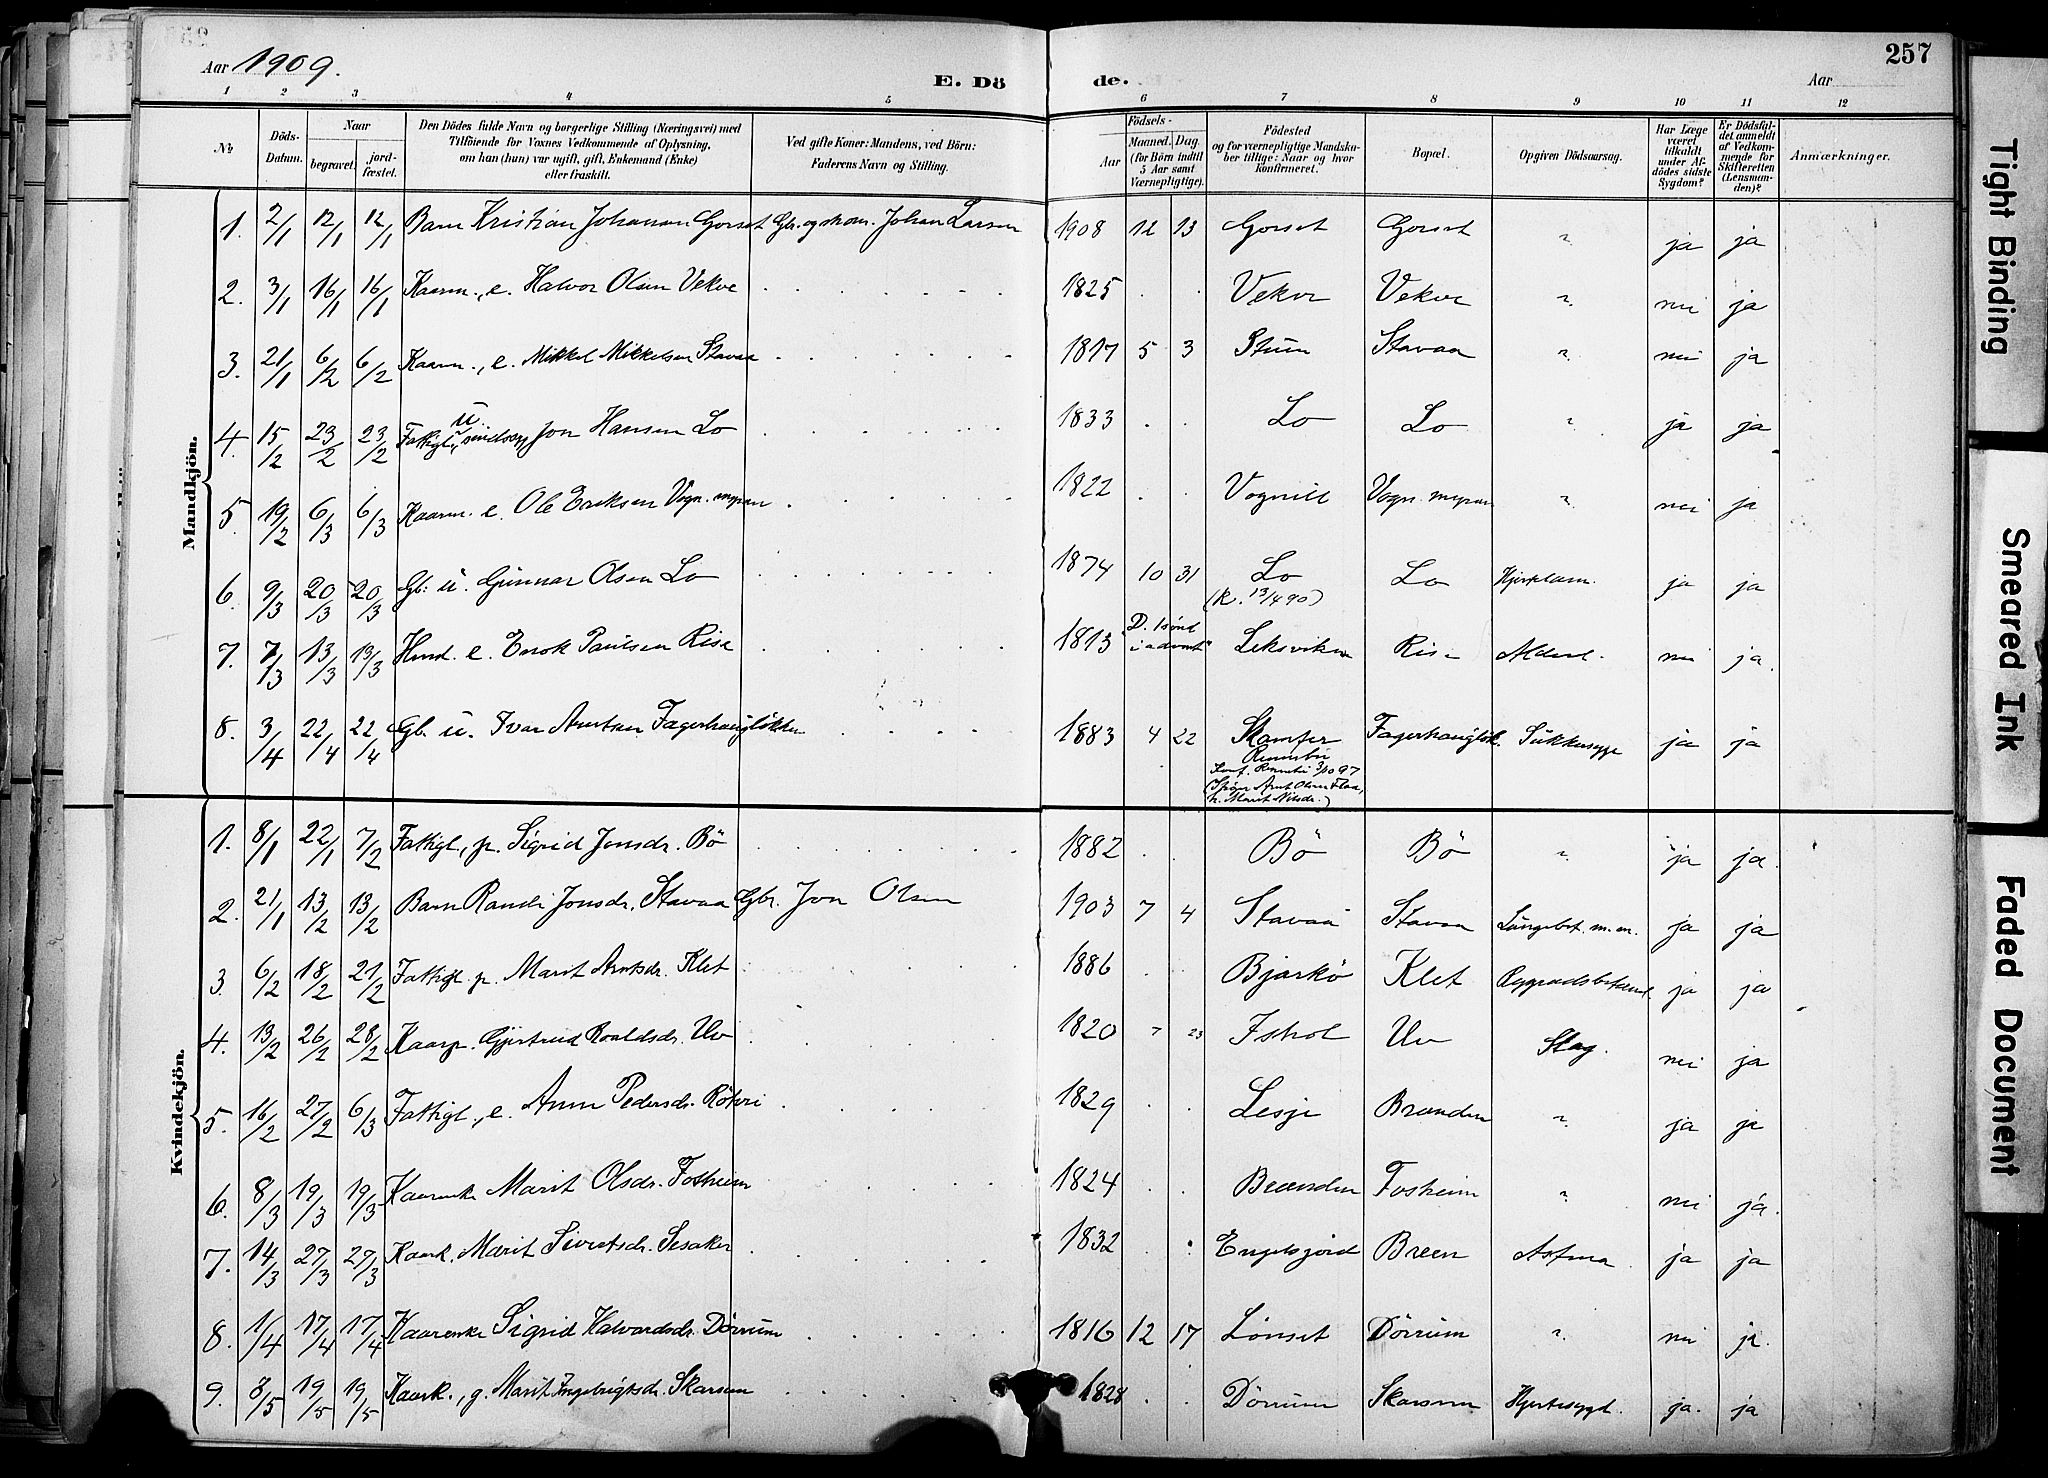 257
Aar 1909.
E. Döde.
Aar
1 2 3 4 5 6 7 8 9 10 11 12
No.
Döds-Datum.
Naar
begravet.
jordfæstet.
Den Dödes fulde Navn og borgerlige Stilling (Næringsvei) med Tilföiende for Voxnes Vedkommende af Oplysning, om han (hun) var ugift, gift, Enkemand (Enke) eller fraskilt.
Ved gifte Koner: Mandens, ved Börn: Faderens Navn og Stilling.
Födsels-
Aar
Maaned. Dag.
(for Börn indtil 5 Aar samt Værnepligtige).
Födested og for værnepligtige Mandskaber tillige: Naar og hvor konfirmeret.
Bopæl.
Opgiven Dödsaarsag.
Har Læge været tilkaldt under Afdödes sidste Sygdom?
Er Dödsfaldet anmeldt af Vedkommende for Skifteretten (Lensmanden)?
Anmærkninger.
Mandkjön.
1. 2/1 12/1 12/1 Barn Kristian Johansen Gorset Gbr. og skom. Johan Larsen 1908 12 13 Gorset Gorset " ja ja
2. 3/1 16/1 16/1 Kaarm., e. Halvor Olsen Vekve 1825 Vekve Vekve " nei ja
3. 21/1 6/2 6/2 Kaarm., e. Mikkel Mikkelsen Stavaa 1817 5 3 Stuen Stavaa " nei ja
4. 15/2 23/2 23/2 Fattigl., u. sindssyg Jon Hansen Lo 1833 Lo Lo " ja ja
5. 19/2 6/3 6/3 Kaarm. e. Ole Eriksen Vogn. myran 1822 Vognill Vogn. myran " nei ja
6. 9/3 20/3 20/3 Gb. u. Gunnar Olsen Lo 1874 10 31 Lo Lo ja ja
(K. 13/4 90)
7. 7/3 13/3 13/3 Hmd. e. Enok Paulsen Rise 1813 "D. 1 sönd i advent" Leksviken Rise Alderd. nei ja.
8. 3/4 22/4 22/4 Gb. u. Ivar Arntsen Fagerhaugløkken 1883 4 22 Skamfer Rennebu Fagerhaugløk. Sukkersyge ja ja
Konf. Rennebu 3/10 97
Arnt Olsen Flaa,
h. Marit Nilsdr.)
Kvindekjön.
1. 8/1 22/1 7/2 Fattigl., p. Sigrid Jonsdr. Bö 1882 Bö Bö " ja ja.
2. 21/1 13/2 13/2 Barn Randi Jonsdr. Stavaa Gbr. Jon Olsen 1903 7 4 Stavaa Stavaa Lungebet. m.m. ja ja
3. 6/2 18/2 21/2 Fattigl. p. Marit Arntsdr. Klet 1886 Bjarkö Klet Rygradsbetænd. ja ja
4. 13/2 26/2 28/2 Kaarp. Gjertrud Roaldsdr. Uv 1820 7 23 Ishol Uv Slag. nei ja
5. 16/2 27/2 6/3 Fattigl., e. Anne Pedersdr. Rökri 1829 Lesje Brænden " ja ja
6. 8/3 19/3 19/3 Kaarenke Marit Olsdr. Fosheim 1824 Brænden Fosheim " nei ja.
7. 14/3 27/3 27/3 Kaark. Marit Sivertsdr. Sesaker 1832 Engelsjord Breen Astma ja ja
8. 1/4 17/4 17/4 Kaarenke Sigrid Halvardsdr. Dörrum 1816 12 17 Lönset Dörrum " nei ja.
9. 8/5 19/5 19/5 Kaark., g. Marit Ingebrigtsdr. Skarsem 1828 Dörrum Skarsem Hjertesygd. ja. ja
Tight Binding
Smeared Ink
Faded Document